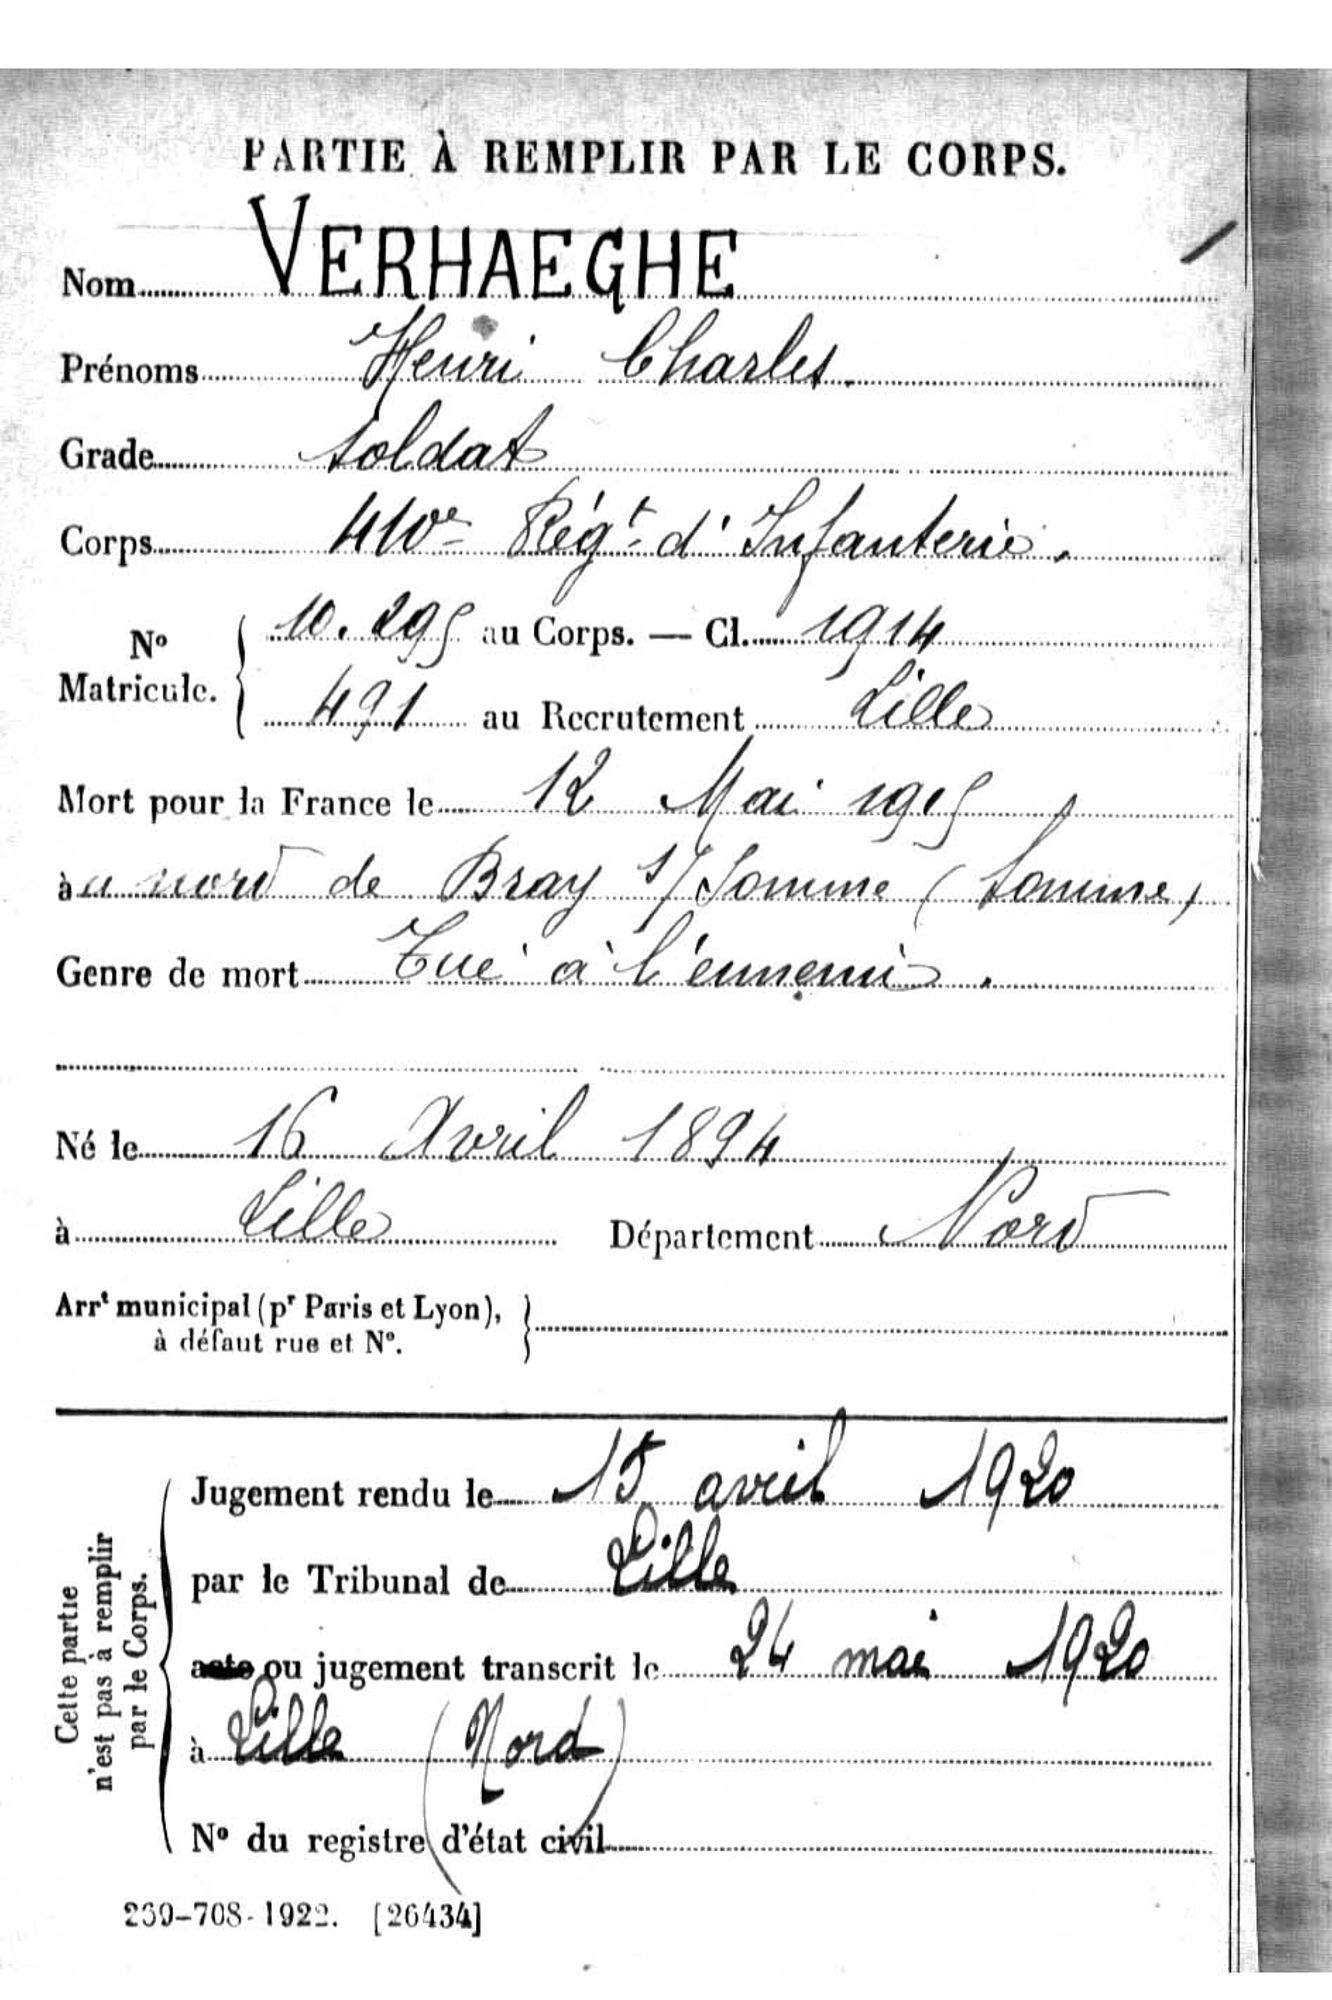 PARTIE À REMPLIR PAR LE CORPS.
Nom VERHAEGHE
Prénoms Henri Charles.
Grade soldat
Corps 410e Régt d'Infanterie.
No Matricule. 10.295 au Corps. — Cl. 1914
491 au Recrutement Lille
Mort pour la France le 12 Mai 1915
àu nord de Bray s/Somme (Somme)
Genre de mort Tué à l'ennemi.
Né le 16 Avril 1894
à Lille Département Nord
Arrt municipal (pr Paris et Lyon),
à défaut rue et No.
Cette partie
n'est pas à remplir
par le Corps.
Jugement rendu le 15 avril 1920
par le Tribunal de Lille
acte ou jugement transcrit le 24 mai 1920
à Lille (Nord)
No du registre d'état civil
239-708-1922. [26434]